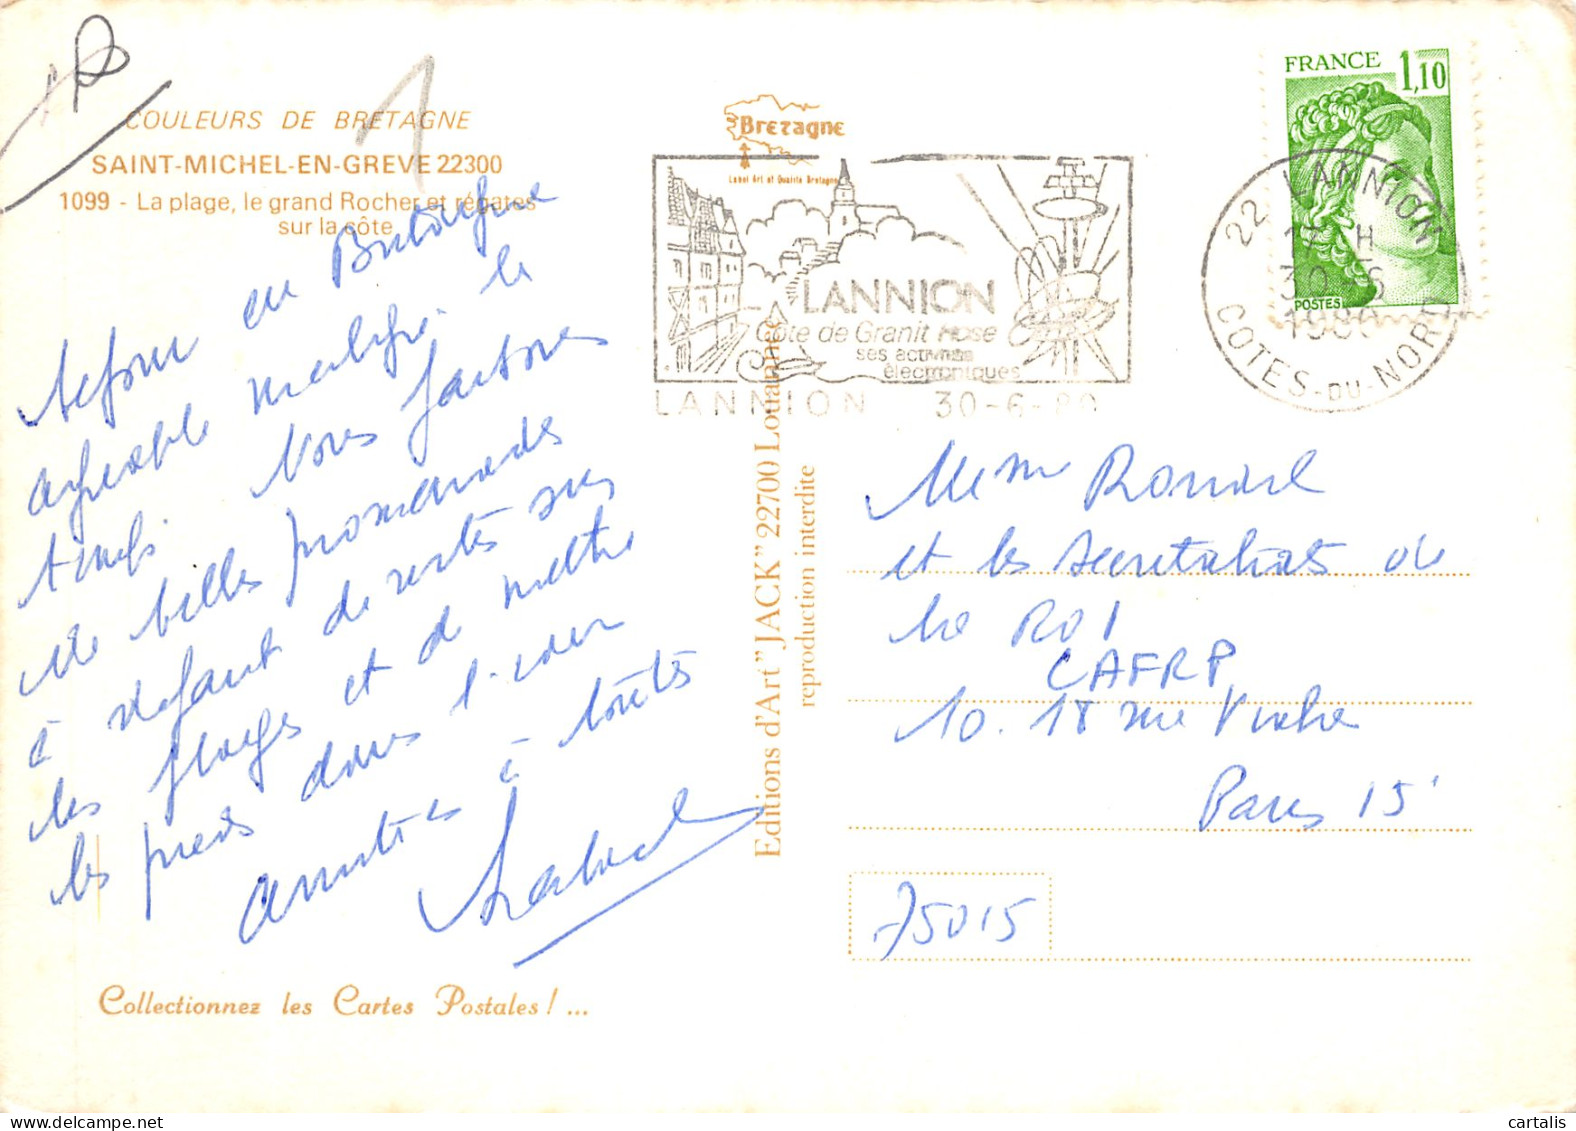 COULEURS DE BRETAGNE
SAINT-MICHEL-EN-GREVE 22300
1099 - La plage, le grand Rocher et régates
sur la côte
Séjour en Bretagne
agréable malgré le
temps Nous faisons
de belles promenades
à défaut de rester sur
les plages et de mettre
les pieds dans l'eau
amitiés à toutes
Collectionnez les Cartes Postales ! ...
Bretagne
Label Art et Qualité Bretagne
LANNION
Côte de Granit Rose
ses activités
électroniques
LANNION 30-6-80
FRANCE 1,10
POSTES
22 LANNION
17 H
30-6
1980
COTES-DU-NORD
Editions d'Art "JACK" 22700 Louannec
reproduction interdite
Mme
et les secrétariats de
le ROI
CAFRP
10. 18 rue
Paris 15
75015